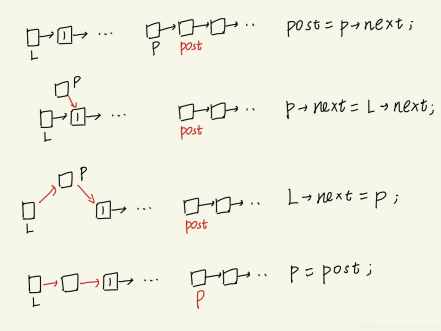 1 ... .. post = p→next;
L P post
P
1 ... .. p→next = L→next;
L post
P
1 ... .. L→next = p;
L post
1 ... .. p = post;
L P